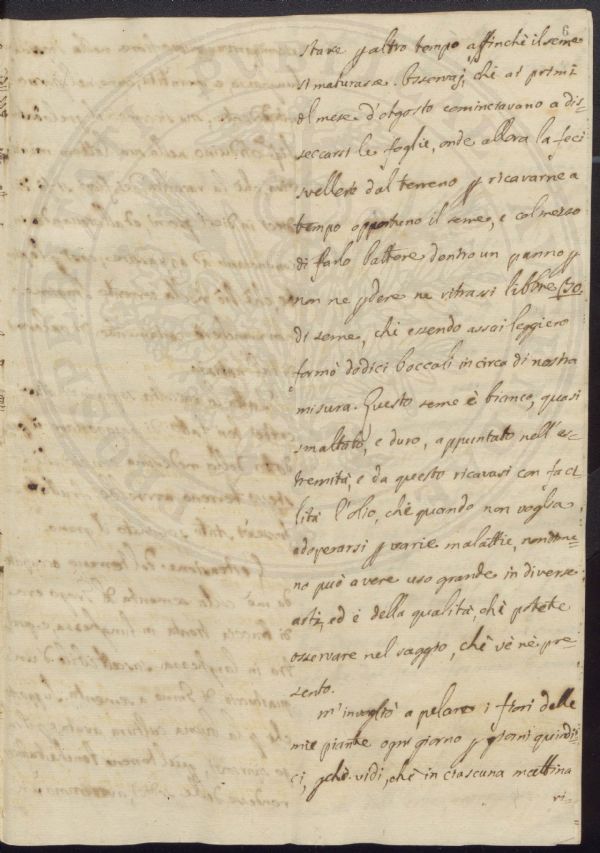 6
stare p altro tempo affinchè il seme
si maturasse. Osservai, chè ai primi
del mese d'Agosto cominciavano a dis=
seccarsi le foglie, onde allora la feci
svellere dal terreno p ricavarne a
tempo opportuno il seme, e col mezzo
di farlo battere dentro un panno p
non ne pdere ne ritrassi libbre 30
di seme, chè essendo assai leggiero
formò dodici boccali in circa di nostra
misura. Questo seme è bianco, quasi
smaltato, e duro, appuntato nell'es=
tremità, e da questo ricavasi con faci
lità l'olio, chè quando non voglia
adoperarsi p varie malattie, nondime=
no può avere uso grande in diverse
arti, ed è della qualità, chè potete
osservare nel saggio, chè vè nè pre=
sento.
M'invogliò a pelare i fiori delle
mie piante ogni giorno p giorni quindi=
ci, pchè vidi, chè in ciascuna mattina
ri=